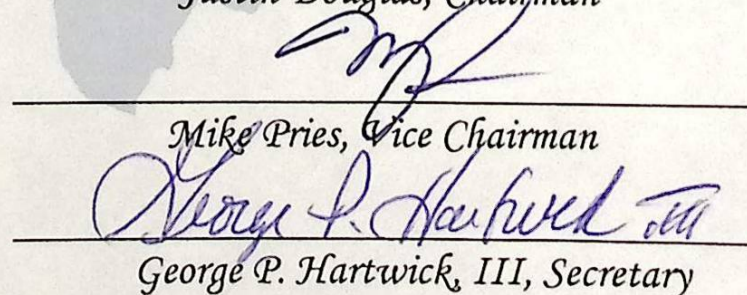 Justin Douglas, Chairman
Mike Pries, Vice Chairman
George P. Hartwick III
George P. Hartwick, III, Secretary